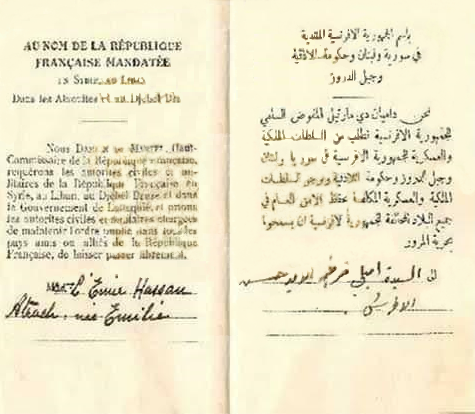 AU NOM DE LA RÉPUBLIQUE
FRANÇAISE MANDATÉE
EN SYRIE AU LIBAN
Dans les Alaouites et au Djebel
Nous DE MARTEL, Haut-
Commissaire de la République Française,
requérons les autorités civiles et mi-
litaires de la République Française en
Syrie, au Liban, au Djebel Druze et dans
le Gouvernement de Lattaquié et prions
les autorités civiles et militaires chargées
de maintenir l'ordre public dans tous les
pays amis ou alliés de la République
Française, de laisser passer librement.
L'Emir Hassan
Atrach, née Emilie
باسم الجمهورية الافرنسية المنتدبة
في سورية ولبنان وحكومة اللاذقية
وجبل الدروز
نحن داميان دي مارتيل المفوض السامي
للجمهورية الافرنسية نطلب من السلطات الملكية
والعسكرية للجمهورية الافرنسية في سوريا ولبنان
وجبل الدروز وحكومة اللاذقية ونرجو السلطات
الملكية والعسكرية المكلفة حفظ الامن العام في
جميع البلاد المحالفة للجمهورية الافرنسية ان يسمحوا
بحرية المرور
الى السيدة اميلي الامير حسن
الاطرش